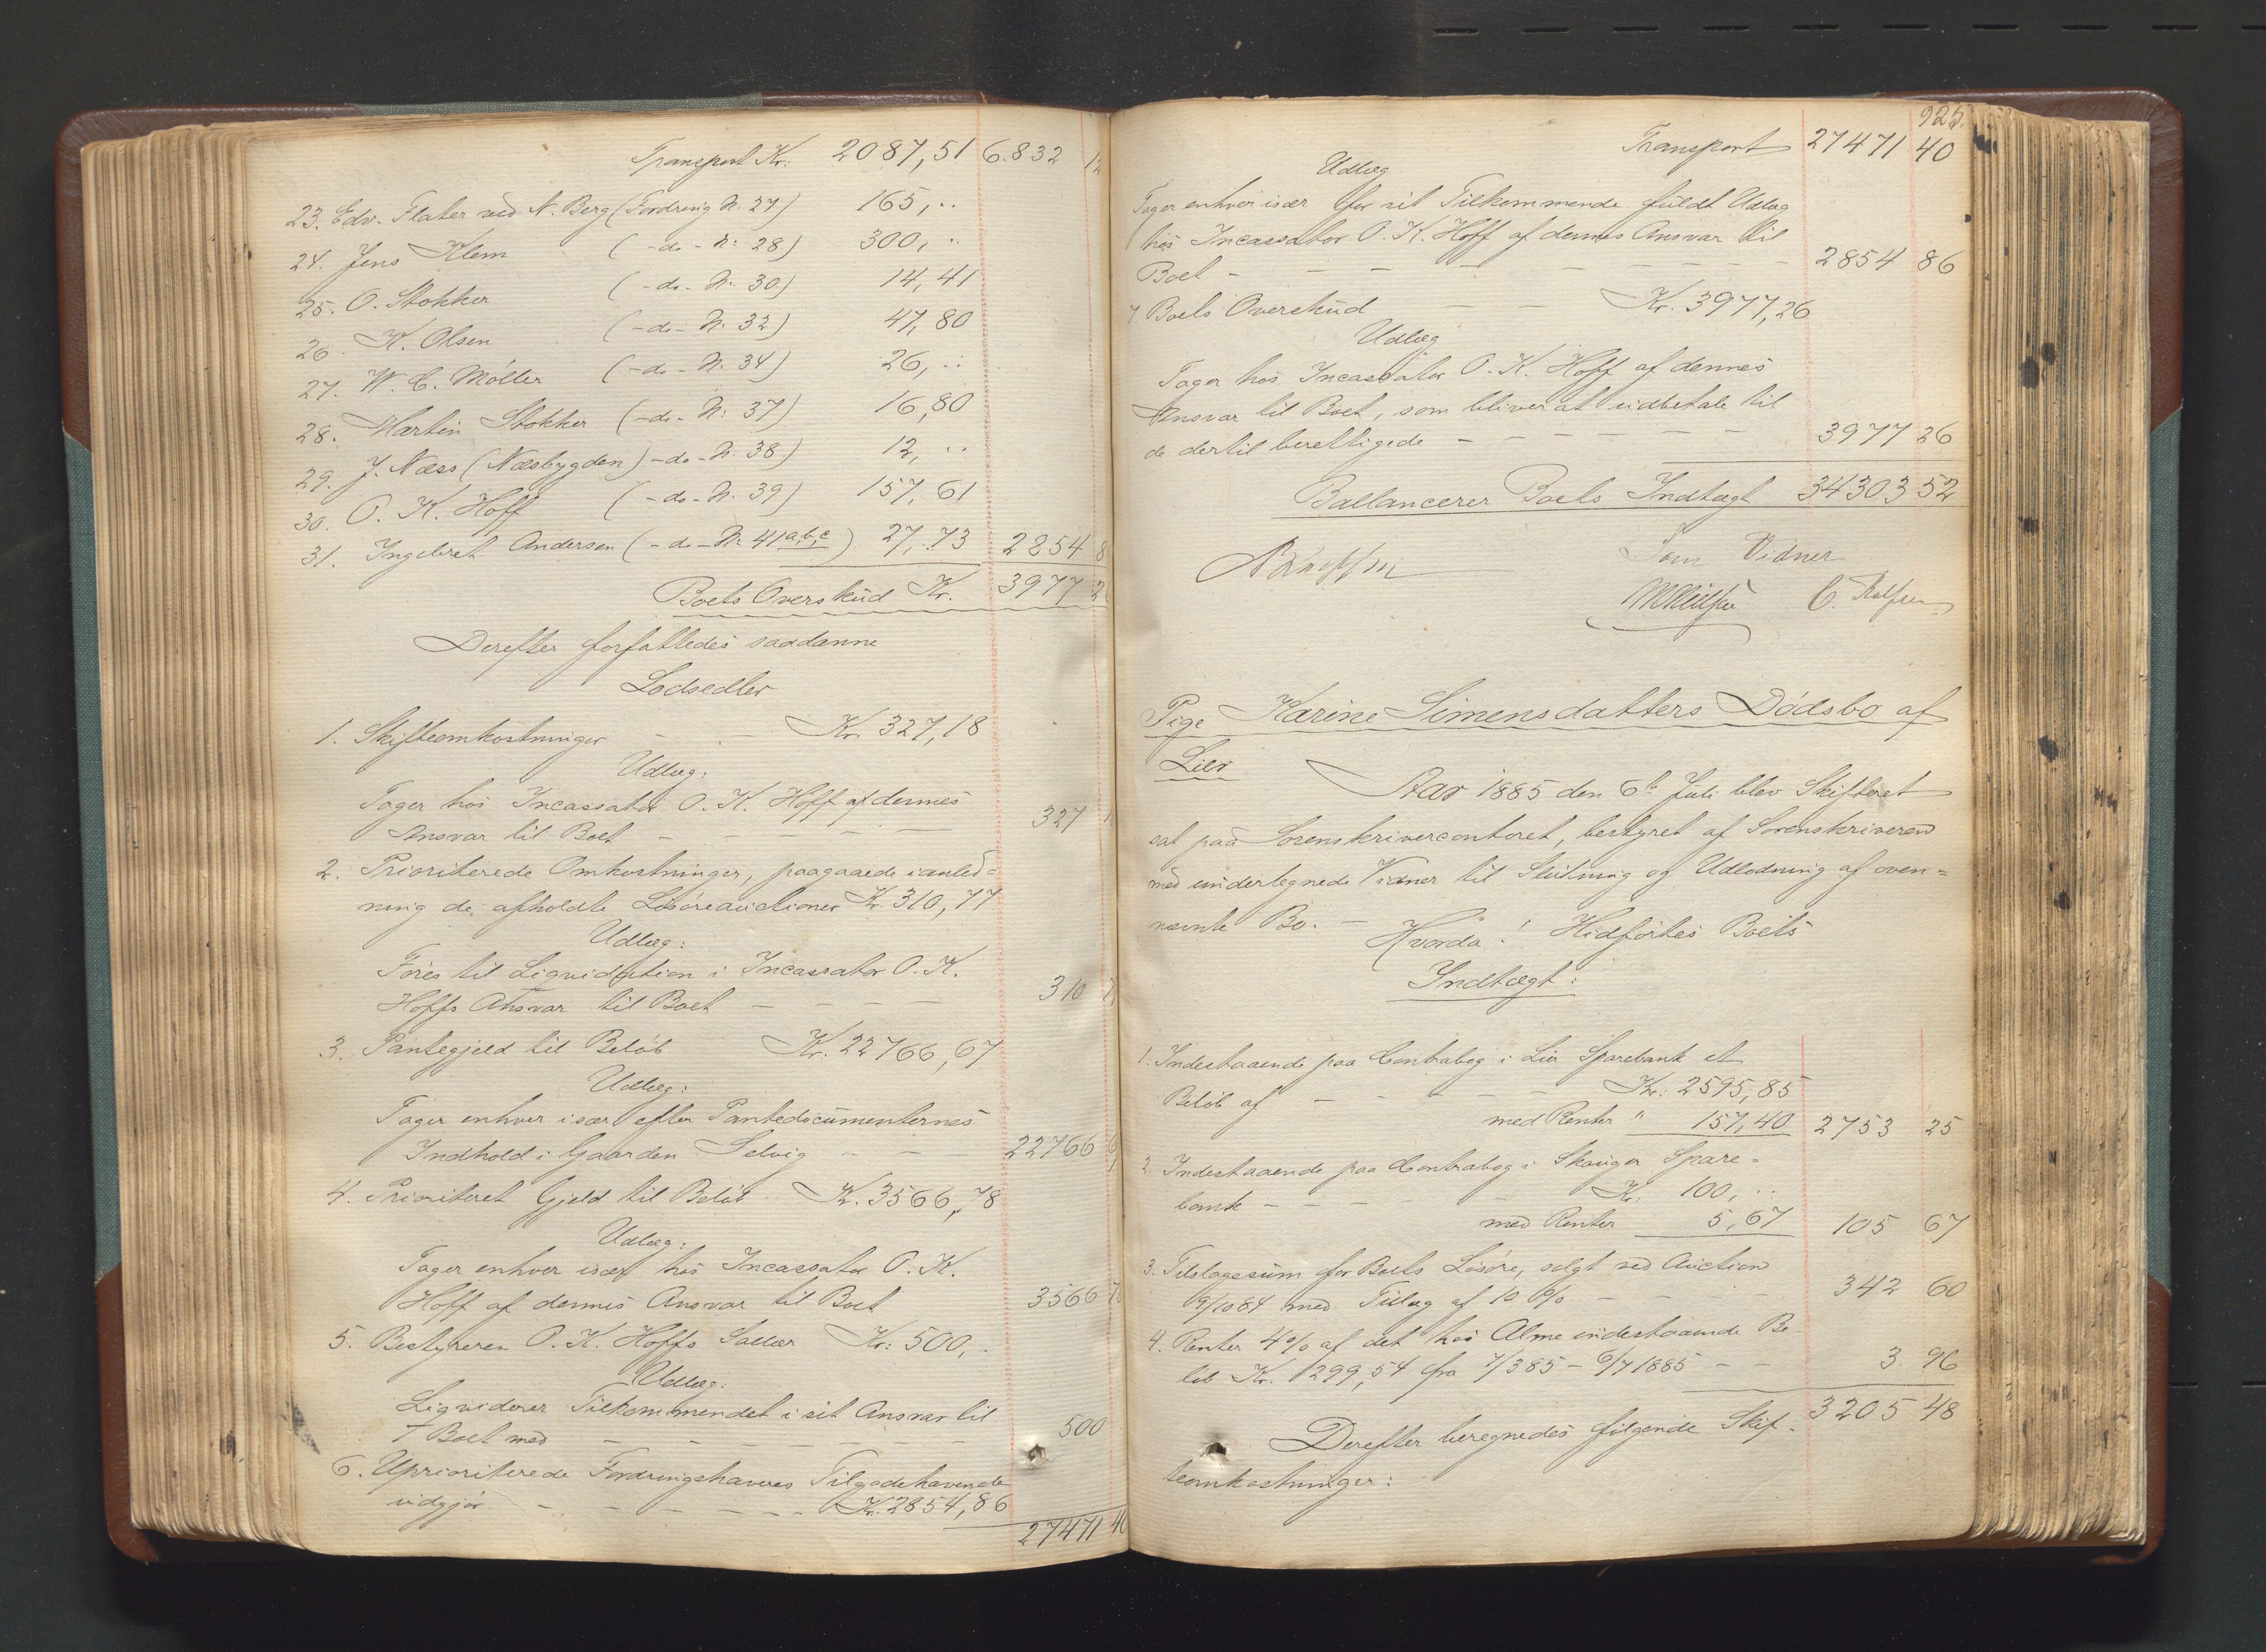 Transport Kr. 2087,51 6832
23. Edv. Flater ved N. Berg (Fordring N. 27) 165,..
24. Jens Klem (-do- N: 28) 300,..
25. O. Stokker (-do- N. 30) 14,41
26. K. Olsen (-do- N. 32) 47,80
27. W. C. Møller (-do- N. 34) 26,..
28. Martin Stokker (-do- N: 37) 16,80
29. J. Næss (Næsbygden) -do- N. 38) 12,..
30. O. K. Hoff (-do- N. 39) 157,61
31. Ingebret Andersen (-do- N. 41 a,b,c) 27,73 2854 8
Boets Overskud Kr. 3977 2
Derefter forfattedes saadanne
Lodsedler
1. Skifteomkostninger - Kr. 327,18
Udlæg:
Tager hos Incassator O. K. Hoff af dennes
Ansvar til Boet - - - - - 327 1
2. Prioriterede Omkostninger, paagaaede i anled=
ning de afholdte Løsøreauctioner Kr. 310,77
Udlæg:
Føres til Liqvidation i Incassator O. K.
Hoffs Ansvar til Boet - - - - 310 7
3. Pantegjeld til Beløb Kr. 22766,67
Udlæg:
Tager enhver især efter Pantedocumenternes
Indhold i Gaarden Selvig - - 22766 6
4. Prioriteret Gjeld til Beløb Kr. 3566,78
Udlæg:
Tager enhver især hos Incassator O. K.
Hoff af dennes Ansvar til Boet 3566 7
5. Bestyreren O. K. Hoffs Salær Kr: 500,.
Udlæg:
Liqviderer Tilkommendet i sit Ansvar til
Boet med - - - - - 500
6. Uprioriterede Fordringshaveres Tilgodehavende
udgjør - - - - - - Kr. 2854,86
27471 40
925.
Transport 27471 40
Udlæg
Tager enhver især for sit Tilkommende fuldt Udlæg
hos Incassator O. K. Hoff af dennes Ansvar til
Boet - - - - - - - - 2854 86
7. Boets Overskud - - Kr. 3977,26
Udlæg
Tager hos Incassator O. K. Hoff af dennes
Ansvar til Boet, som bliver at udbetale til
de dertil berettigede - - - - - - 3977 26
Ballancerer Boets Indtægt 34303 52
Som Vidner
Pige Karine Simensdatters Dødsbo af
Lier
Aar 1885 den 6te Juli blev Skifteret
sat paa Sorenskrivercontoret, bestyret af Sorenskriveren
med undertegnede Vidner til Slutning og Udlodning af oven=
nævnte Bo. - Hvorda! Hidførtes Boets
Indtægt:
1. Indestaaende paa Contrabog i Lier Sparebank et
Beløb af - - - - - Kr: 2595,85
med Renter " 157,40 2753 25
2. Indestaaende paa Contrabog i Skouger Spare=
bank - - - - Kr. 100,..
med Renter 5,67 105 67
3. Tilslagssum for Boets Løsøre, solgt ved Auction
9/10 84 med Tillæg af 10 % - - - 342 60
4. Renter 4% af det hos Alme indestaaende Be-
løb Kr. 299,54 fra 7/3 85 - 6/7 1885 - - 3 96
3205 48
Derefter beregnedes følgende Skif-
teomkostninger: